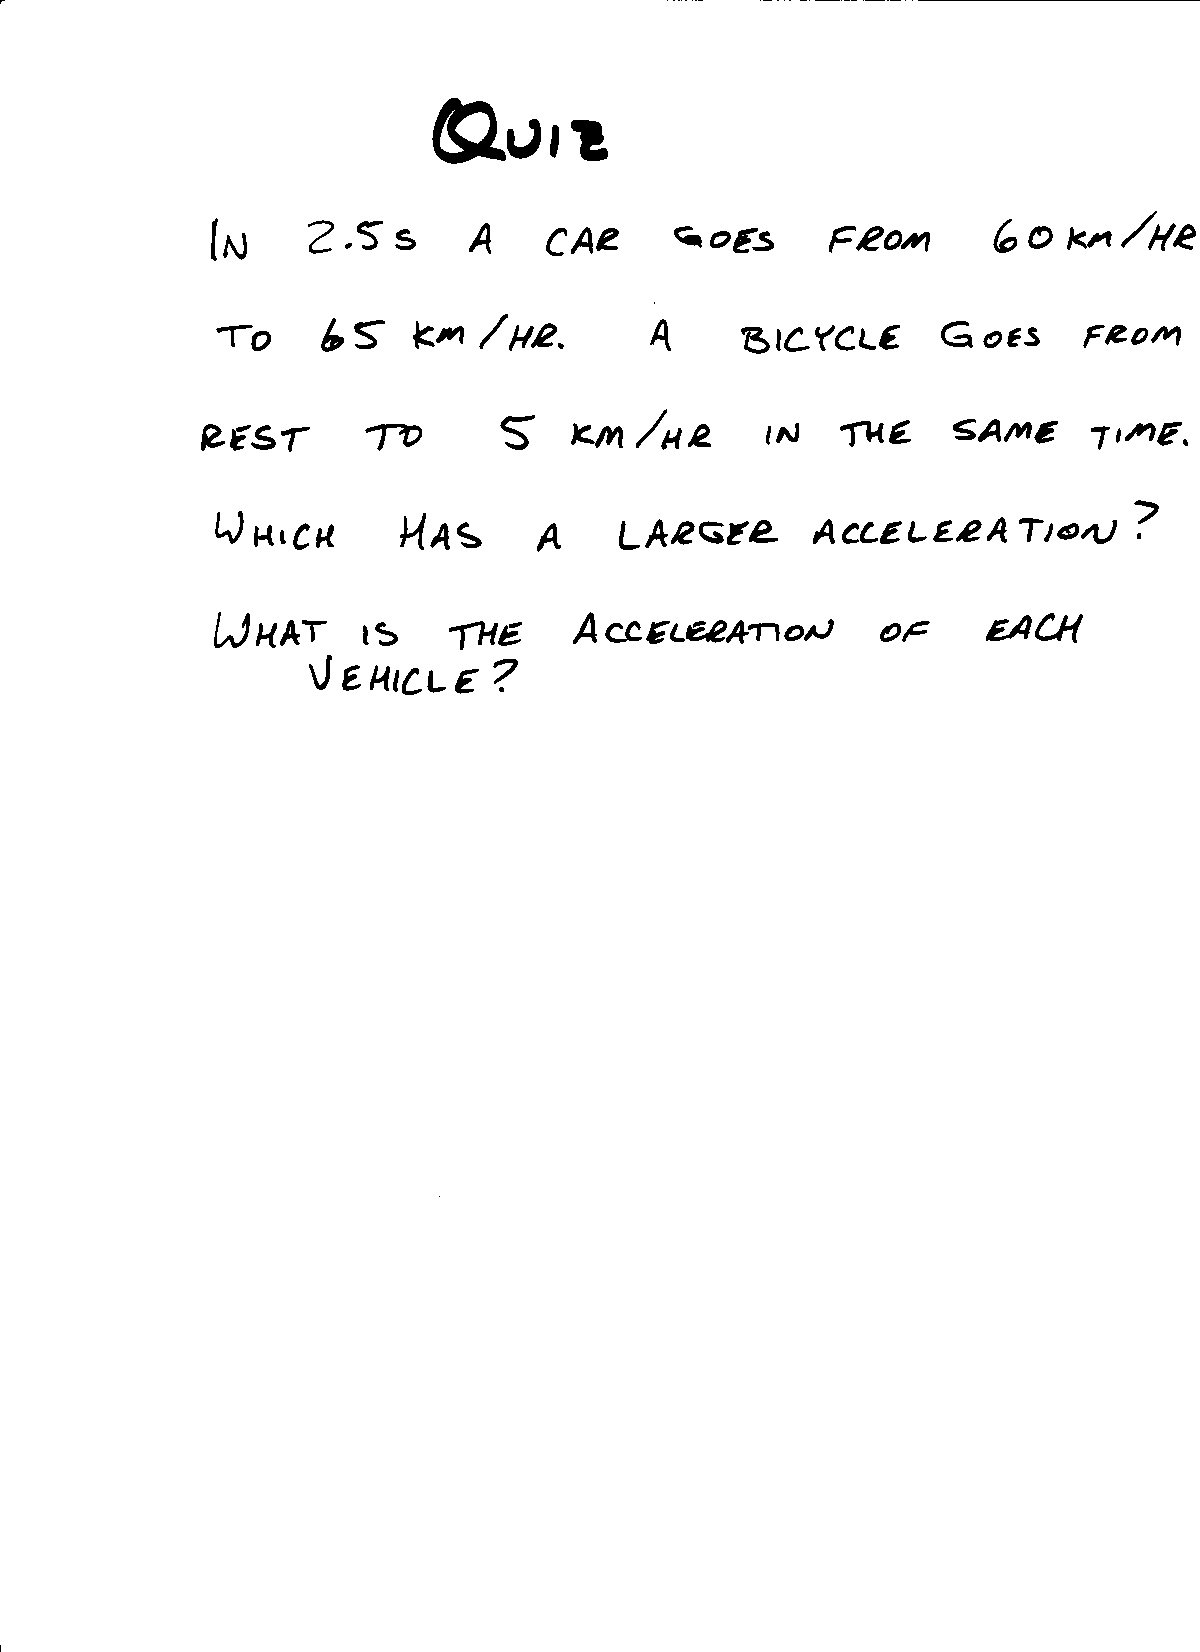 QUIZ
IN 2.5 S A CAR GOES FROM 60 KM/HR
TO 65 KM/HR. A BICYCLE GOES FROM
REST TO 5 KM/HR IN THE SAME TIME.
WHICH HAS A LARGER ACCELERATION?
WHAT IS THE ACCELERATION OF EACH
VEHICLE?